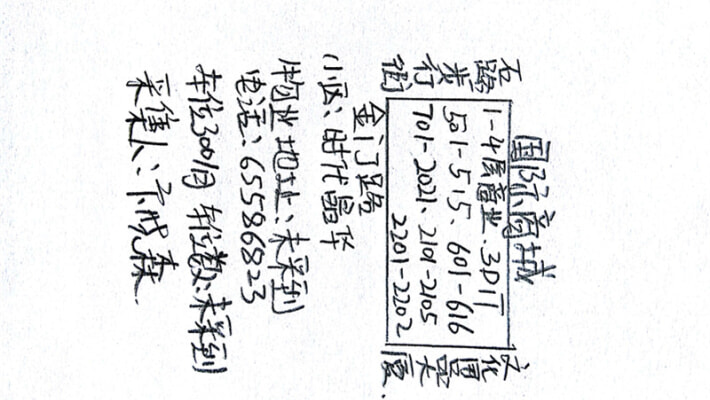 国际商城
石路
步行
街
1-4层商业、3D1T
501-515、601-616
701-2021、2101-2105
2201-2202
文化
大厦
金门路
小区：时代晶华
物业地址：未采到
电话：65586823
车位300/月 车位数：未采到
采集人：